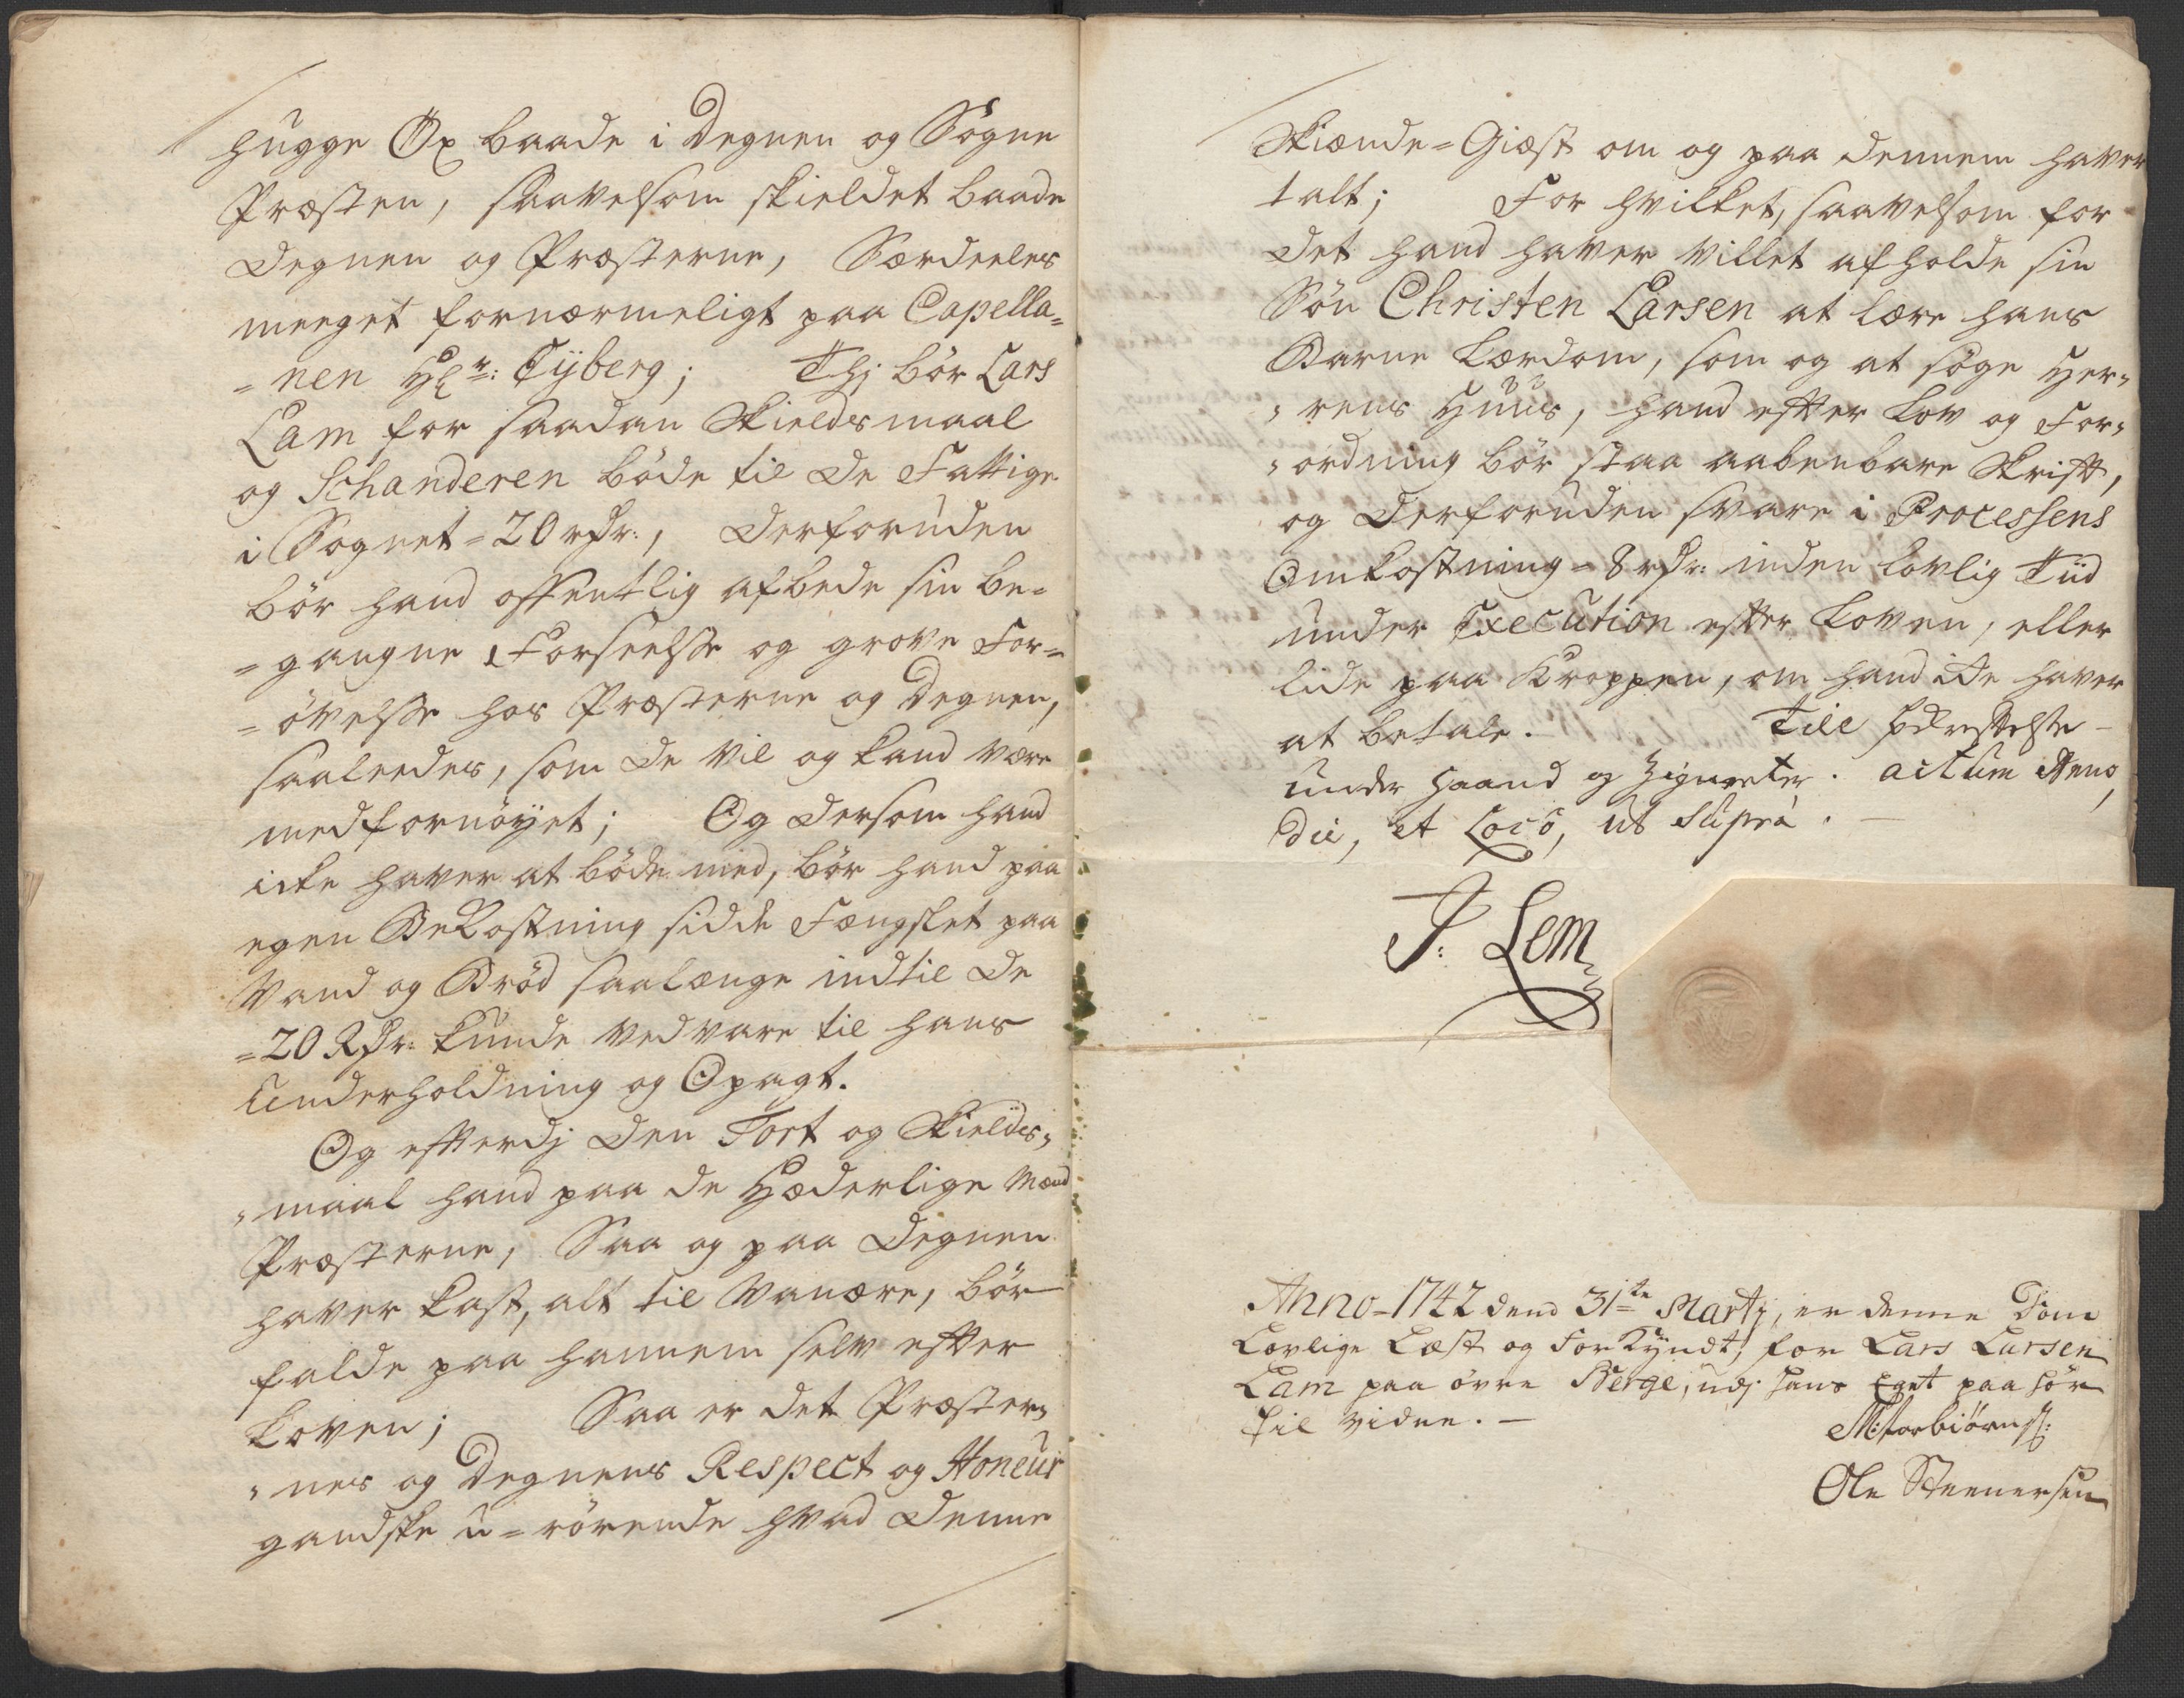 hugge Øx baade i Degnen og Sogne
Præsten, saavelsom skieldet baade
Degnen og Præsterne, Særdeeles
meeget fornærmeligt paa Capella=
=nen Hr: Tyberg; Thj bör Lars
Lam for saadan Skieldsmaal
og Schanderen böde til de Fattige
i Sognet = 20 rdr:, derforuden
bör hand offentlig afbede sin be=
=gangne Forseelse og grove For=
=övelse hos Præsterne og Degnen,
saaleedes, som de vil og kand være
medfornöyet; Og dersom hand
icke haver at böde med, bör hand paa
egen Bekostning sidde Fængslet paa
Vand og Bröd saalænge indtil de
=20 Rdr: kunde vedvare til hans
Underholdning og Opagt.
Og efterdj den Tort og Skields=
=maal hand paa de Hæderlige Mænd
Præsterne, Saa og paa Degnen
haver kast, alt til Vanære, bör
falde paa hannem selv efter
Loven; Saa er det Præster=
=nes og Degnens Respect og Honeur
gandske u=rörende hvad denne
Skiænde=Giæst om og paa dennem haver
talt; For hvilket, saavelsom for
det hand haver villet afholde sin
Sön Christen Larsen at lære hans
Barne Lærdom, som og at söge Her=
=rens Huus, hand efter Lov og For=
=ordning bör staa aabenbare Skrift,
og derforuden svare i Processens
Omkostning = 8 rdr: inden lovlig Tiid
under Execution efter Loven, eller
lide paa Kroppen, om hand icke haver
at betale. Till
under Haand og Zigneter. Actum Anno,
Die, et Loco, ut Supra.
P: Lem
Anno = 1742 dend 31te Martj, er denne Dom
Lovlige Læst og Forkyndt, for Lars Larsen
Lam paa övre Berge, udj hans Eget paa hör
til vidne.
M: Torbiörns:
Ole Steenersen